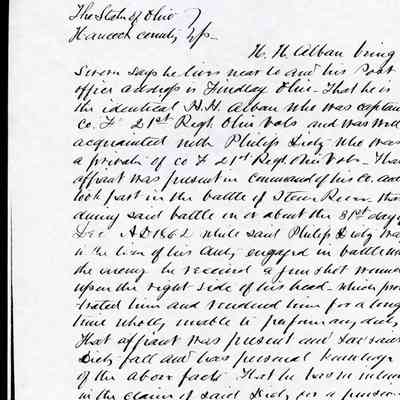 The State of Ohio }
Hancock County } ss
H. H. Alban being
sworn says he lives near to and his Post
office address is Findlay Ohio - That he is
the identical H. H. Alban who was captain
Co. F 21st Regt Ohio Vols and was well
acquainted with Philip who was
a private of Co F 21st Regt Ohio Vols - That
affiant was present in command of his Co. and
took part in the battle of Stone River - that
during said battle on or about the 31st day of
Dec A D 1862 while said Philip was
in the line of his duty engaged in battle with
the enemy he received a gun shot wound
upon the right side of his head - which pros
trated him and rendered him for a long
time wholly unable to perform any duty
That affiant was present and saw said
fall and has personal knowledge
of the above facts That he has no interest
in the claim of said for a pension